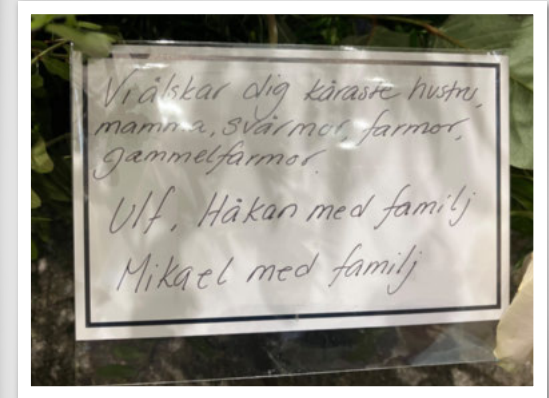 Vi älskar dig käraste hustru,
mamma, svärmor, farmor,
gammelfarmor.
Ulf, Håkan med familj
Mikael med familj